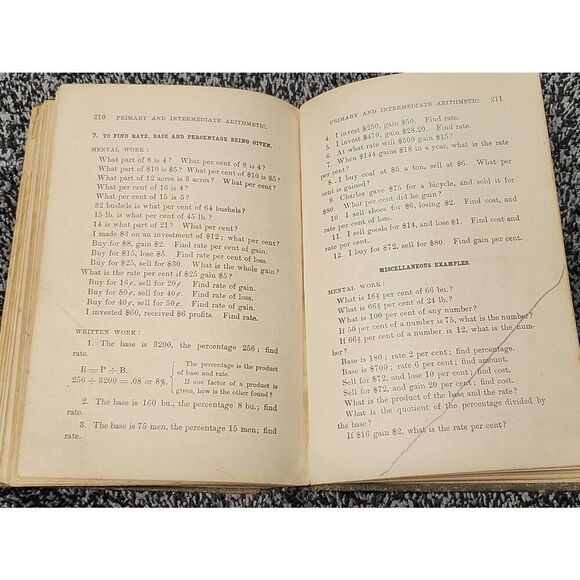 210 PRIMARY AND INTERMEDIATE ARITHMETIC.
7. TO FIND RATE, BASE AND PERCENTAGE BEING GIVEN.
MENTAL WORK:
What part of 8 is 4? What per cent of 8 is 4?
What part of $10 is $5? What per cent of $10 is $5?
What part of 12 acres is 3 acres? What per cent?
What per cent of 16 is 4?
What per cent of 15 is 5?
32 bushels is what per cent of 64 bushels?
15 lb. is what per cent of 45 lb.?
14 is what part of 21? What per cent?
I made $3 on an investment of $12; what per cent?
Buy for $8, gain $2. Find rate per cent of gain.
Buy for $15, lose $5. Find rate per cent of loss.
Buy for $25, sell for $30. What is the whole gain?
What is the rate per cent if $25 gain $5?
Buy for 16¢, sell for 20¢. Find rate of gain.
Buy for 50¢, sell for 40¢. Find rate of loss.
Buy for 40¢, sell for 50¢. Find rate of gain.
I invested $60, received $6 profits. Find rate.
WRITTEN WORK:
1. The base is 3200, the percentage 256; find
rate.
R = P ÷ B.
256 ÷ 3200 = .08 or 8%.
The percentage is the product
of base and rate.
If one factor of a product is
given, how is the other found?
2. The base is 160 bu., the percentage 8 bu.; find
rate.
3. The base is 75 men, the percentage 15 men; find
rate.
PRIMARY AND INTERMEDIATE ARITHMETIC. 211
4. I invest $250, gain $50. Find rate.
5. I invest $470, gain $28.20. Find rate.
6. At what rate will $500 gain $15?
7. When $144 gains $18 in a year, what is the rate
per cent?
8. I buy coal at $5 a ton, sell at $6. What per
cent is gained?
9. Charles gave $75 for a bicycle, and sold it for
$80. What per cent did he gain?
10. I sell shoes for $6, losing $2. Find cost, and
rate per cent of loss.
11. I sell goods for $14, and lose $1. Find cost and
rate per cent.
12. I buy for $72, sell for $80. Find gain per cent.
MISCELLANEOUS EXAMPLES.
MENTAL WORK:
What is 16⅔ per cent of 66 bu.?
What is 66⅔ per cent of 24 lb.?
What is 100 per cent of any number?
If 50 per cent of a number is 75, what is the number?
If 66⅔ per cent of a number is 12, what is the num-
ber?
Base is 180; rate 2 per cent; find percentage.
Base is $700; rate 6 per cent; find amount.
Sell for $72, and lose 10 per cent; find cost.
Sell for $72, and gain 20 per cent; find cost.
What is the product of the base and the rate?
What is the quotient of the percentage divided by
the base?
If $16 gain $2, what is the rate per cent?